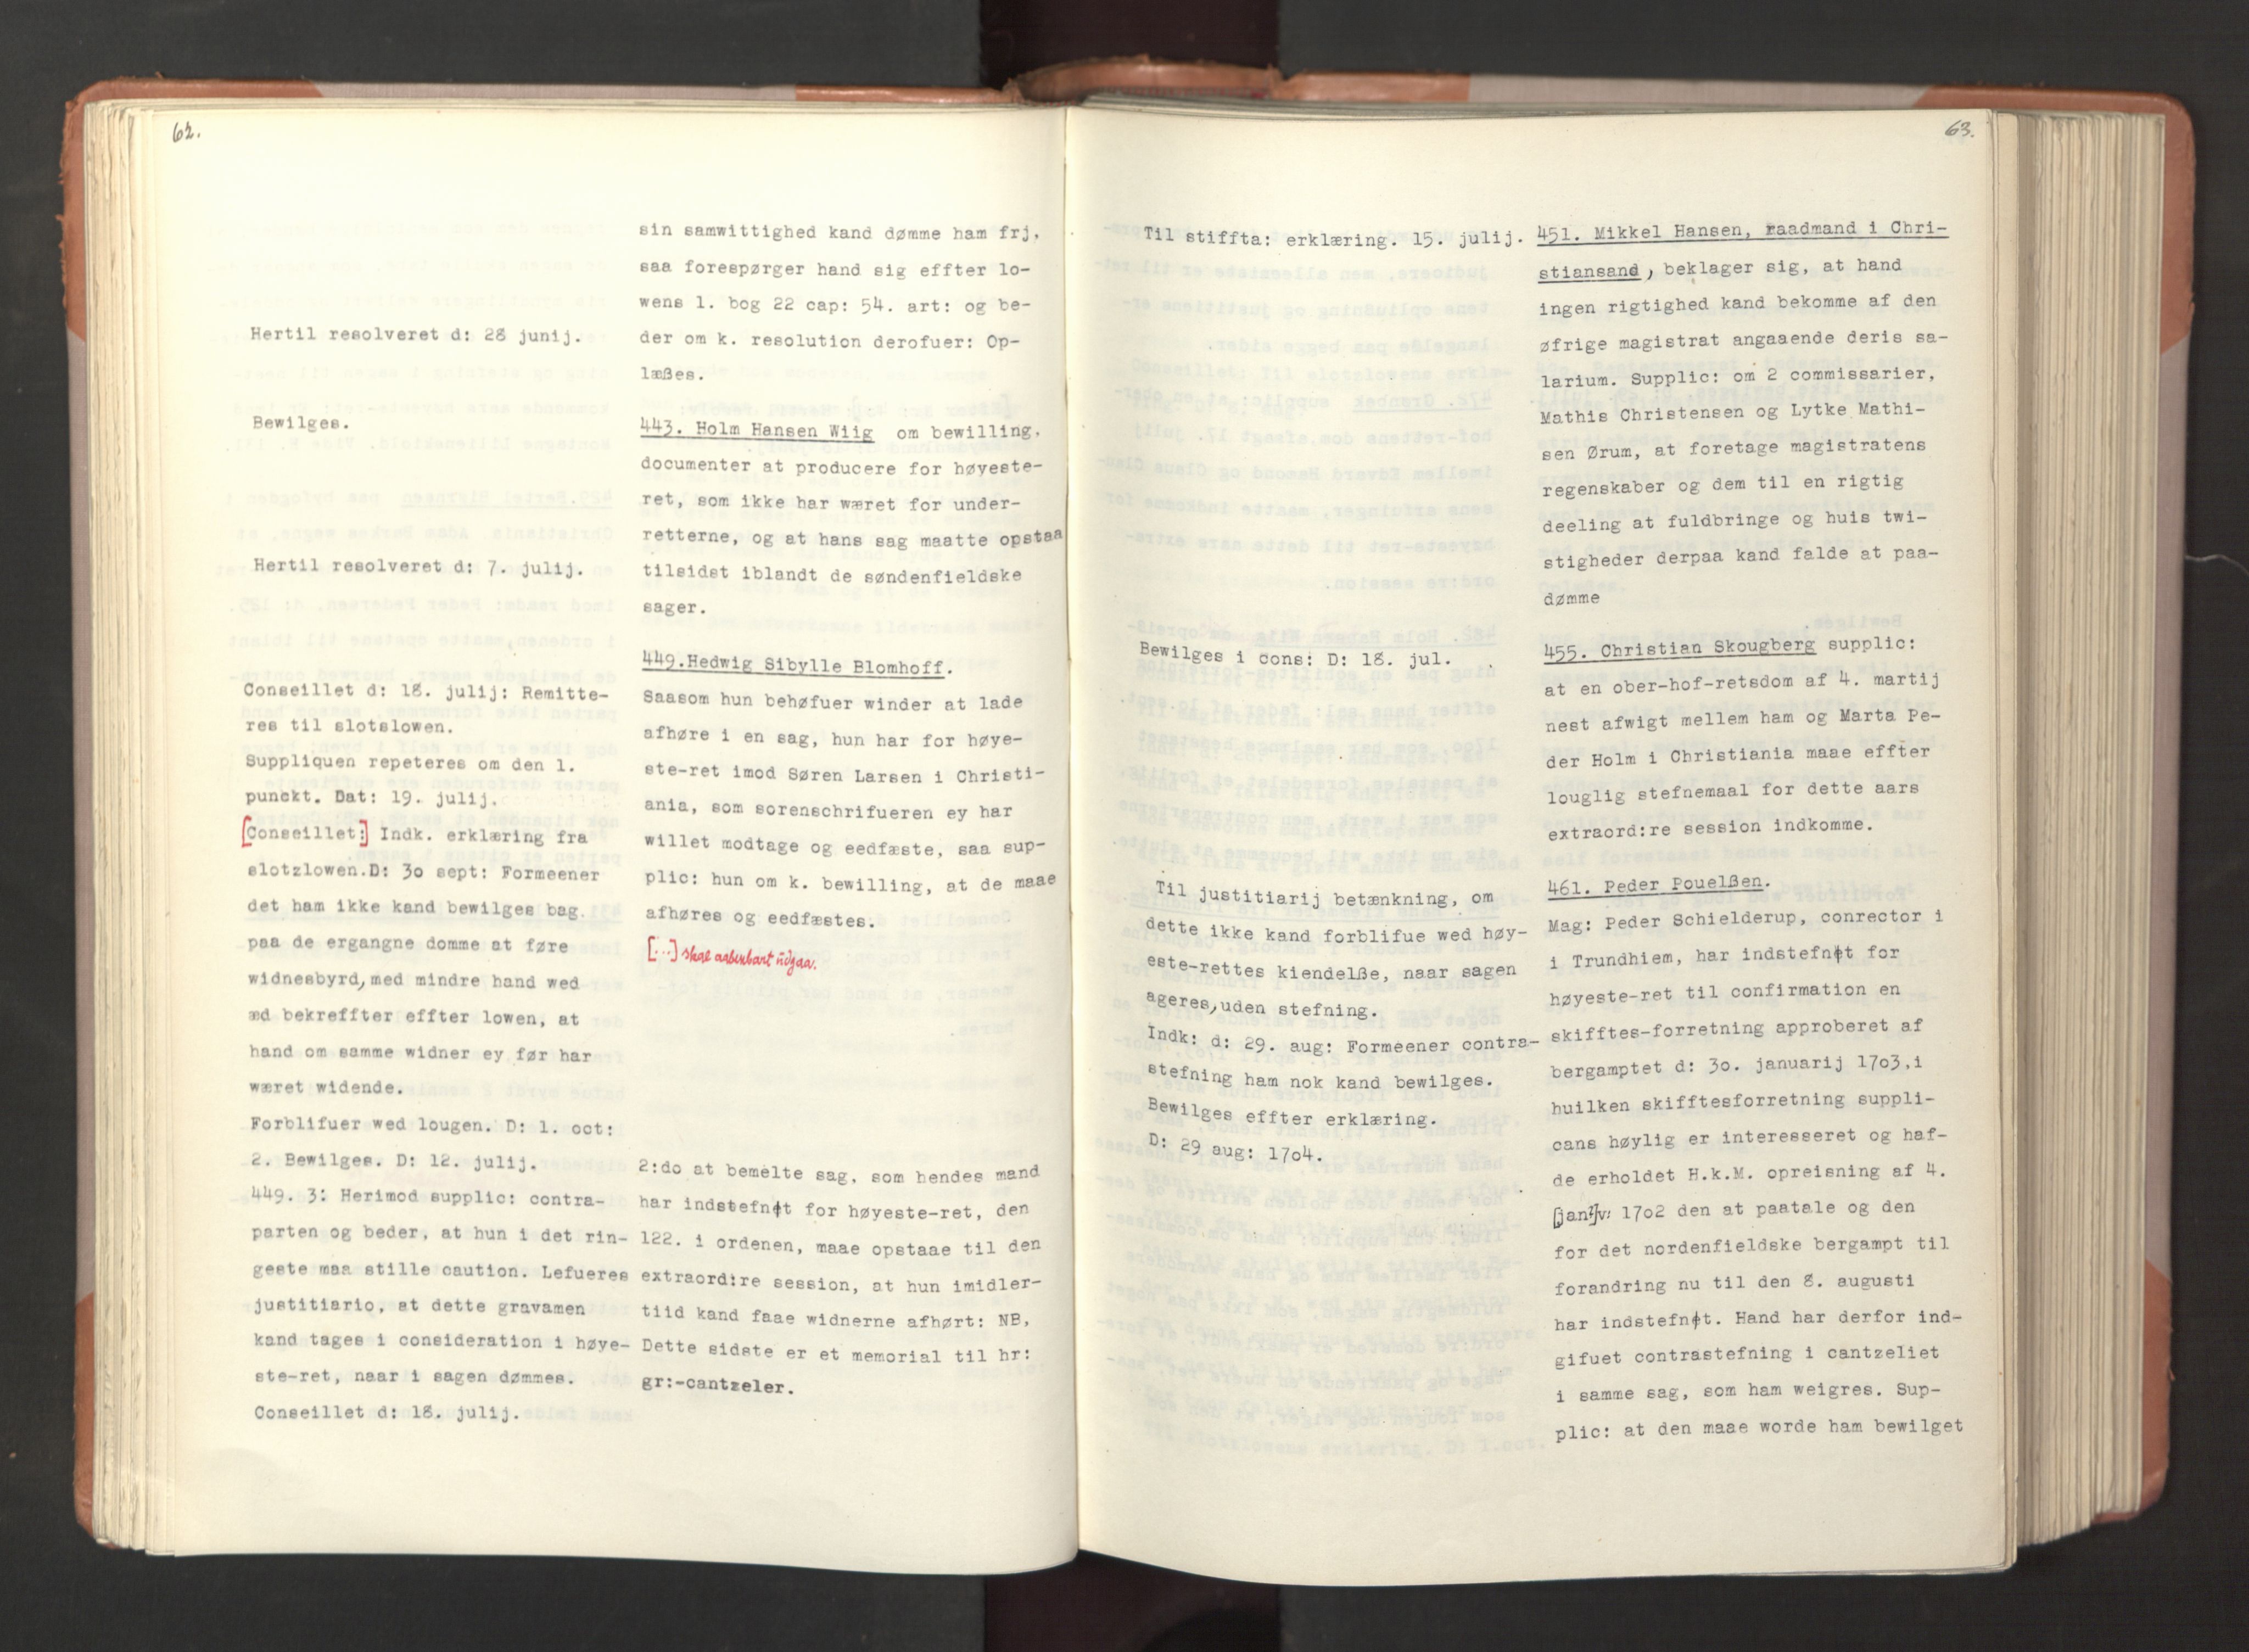 62.
Hertil resolveret d: 28 junij.
Bewilges.
Hertil resolveret d: 7. julij.
Conseillet d: 18. julij: Remitte-
res til slotslowen.
Suppliquen repeteres om den 1.
punckt. Dat: 19. julij.
[Conseillet:] Indk. erklæring fra
slotzlowen.D: 3o sept: Formeener
det ham ikke kand bewilges bag
paa de ergangne domme at føre
widnesbyrd, med mindre hand wed
æd bekreffter effter lowen, at
hand om samme widner ey før har
wæret widende.
Forblifuer wed lougen. D: 1. oct:
2. Bewilges. D: 12. julij.
449. 3: Herimod supplic: contra-
parten og beder, at hun i det rin-
geste maa stille caution. Lefueres
justitiario, at dette gravamen
kand tages i consideration i høye-
ste-ret, naar i sagen dømmes.
Conseillet d: 18. julij.
sin samwittighed kand dømme ham frj,
saa forespørger hand sig effter lo-
wens 1. bog 22 cap: 54. art: og be-
der om k. resolution derofuer: Op-
læßes.
443. Holm Hansen Wiig om bewilling,
documenter at producere for høyeste-
ret, som ikke har wæret for under-
retterne, og at hans sag maatte opstaa
tilsidst iblandt de søndenfieldske
sager.
449.Hedwig Sibylle Blomhoff.
Saasom hun behøfuer winder at lade
afhøre i en sag, hun har for høye-
ste-ret imod Søren Larsen i Christi-
ania, som sorenschrifueren ey har
willet modtage og eedfæste, saa sup-
plic: hun om k. bewilling, at de maae
afhøres og eedfæstes.
[...] skal aabenbart udgaa.
2:do at bemelte sag, som hendes mand
har indstefnt for høyeste-ret, den
122. i ordenen, maae opstaae til den
extraord:re session, at hun imidler-
tiid kand faae widnerne afhørt: NB,
Dette sidste er et memorial til hr:
gr:-cantzeler.
63.
Til stiffta: erklæring. 15. julij.
Bewilges i cons: D: 18. jul.
Til justitiarij betænkning, om
dette ikke kand forblifue wed høy-
este-rettes kiendelße, naar sagen
ageres, uden stefning.
Indk: d: 29. aug: Formeener contra-
stefning ham nok kand bewilges.
Bewilges effter erklæring.
D: 29 aug: 17o4.
451. Mikkel Hansen, raadmand i Chri-
stiansand, beklager sig, at hand
ingen rigtighed kand bekomme af den
øfrige magistrat angaaende deris sa-
larium. Supplic: om 2 commissarier,
Mathis Christensen og Lytke Mathi-
sen Ørum, at foretage magistratens
regenskaber og dem til en rigtig
deeling at fuldbringe og huis twi-
stigheder derpaa kand falde at paa-
dømme
455. Christian Skougberg supplic:
at en ober-hof-retsdom af 4. martij
nest afwigt mellem ham og Marta Pe-
der Holm i Christiania maae effter
louglig stefnemaal for dette aars
extraord:re session indkomme.
461. Peder Pouelßen.
Mag: Peder Schielderup, conrector i
i Trundhiem, har indstefnt for
høyeste-ret til confirmation en
skifftes-forretning approberet af
bergamptet d: 3o. januarij 17o3,i
huilken skifftesforretning suppli-
cans høylig er interesseret og haf-
de erholdet H.k.M. opreisning af 4.
17o2 den at paatale og den
for det nordenfieldske bergampt til
forandring nu til den 8. augusti
har indstefnt. Hand har derfor ind-
gifuet contrastefning i cantzeliet
i samme sag, som ham weigres. Sup-
plic: at den maae worde ham bewilget